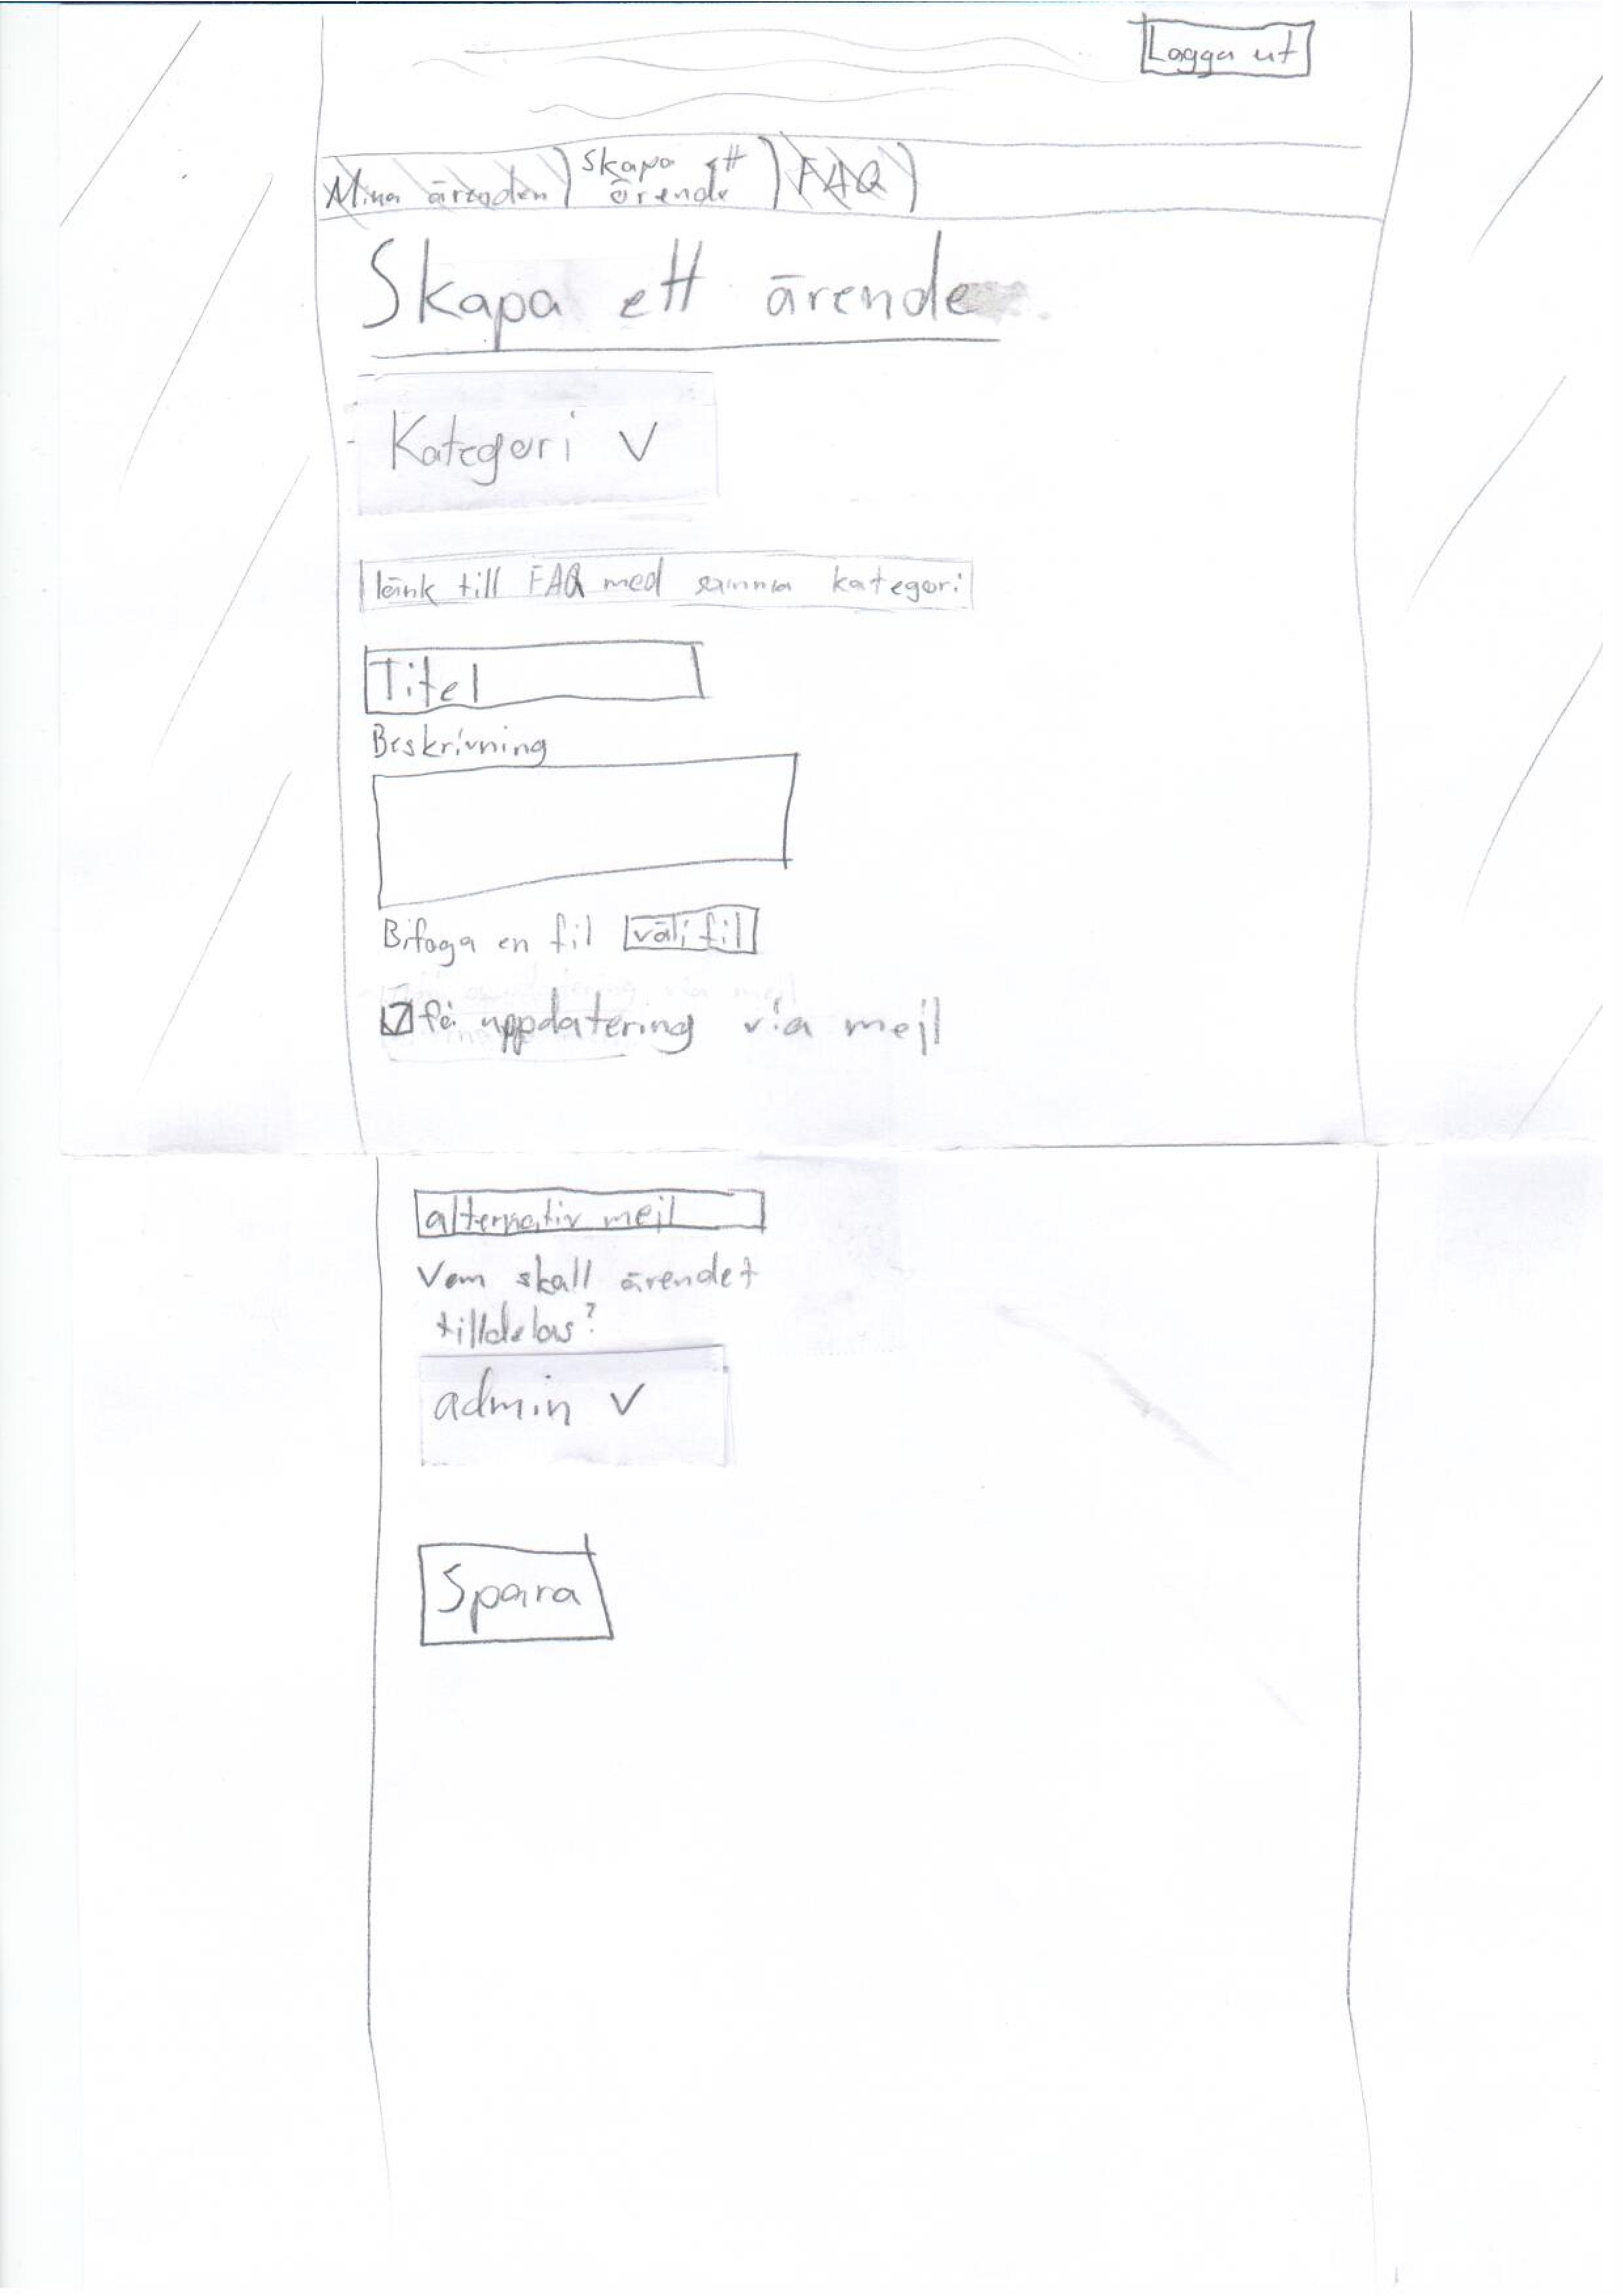 Logga ut
Mina ärenden
Skapa ett
ärende
FAQ
Skapa ett ärende
Kategori V
länk till FAQ med samma kategori
Titel
Beskrivning
Bifoga en fil välj fil
få uppdatering via mejl
alternativ mejl
Vem skall ärendet
tilldelas?
admin V
Spara